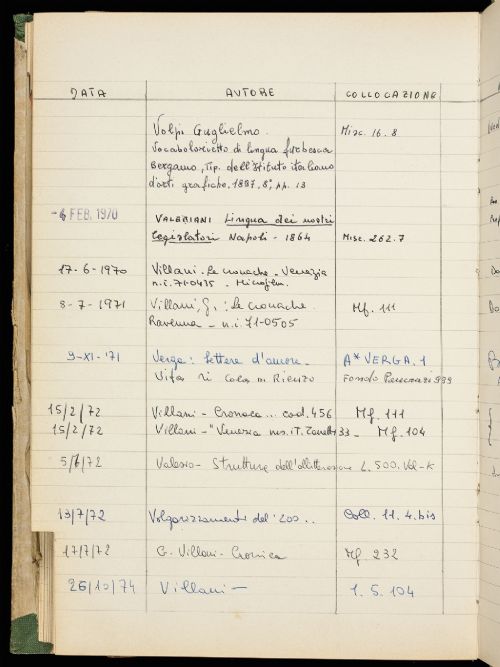 DATA AUTORE COLLOCAZIONE
Volpi Guglielmo. Misc. 16. 8
Vocabolarietto di lingua furbesca
Bergamo, Tip. dell'Istituto italiano
d'arti grafiche. 1897. 8°, pp. 13
-6 FEB. 1970 VALERIANI Lingua dei nostri
legislatori Napoli - 1864 Misc. 262.7
17-6-1970 Villani - Le cronache - Venezia
n.i. 71-0435 - Microfilm.
8-7-1971 Villani, G. : Le cronache. Mf. 111
Ravenna - n.i. 71-0505
9-XI-'71 Verga: Lettere d'amore - A* VERGA. 1
Vita di Cola di Rienzo Fondo 999
15/2/72 Villani - Cronaca... cod. 456 Mf. 111
15/2/72 Villani - "Venezia ms. iT. Zanetti 33 - Mf. 104
5/7/72 Valesio - Strutture dell'allitterazione L. 500. Val-K
13/7/72 Volgarizzamenti del '200.. Coll. 11. 4. bis
17/7/72 G. Villani - Cronica Mf. 232
26/10/74 Villani - 1. 5. 104